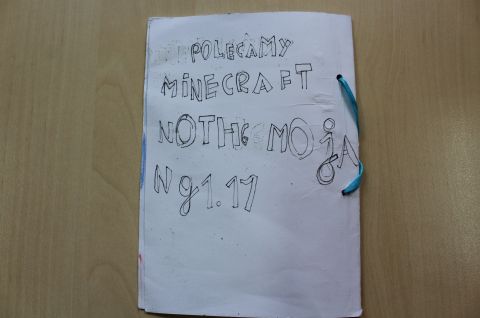 POLECAMY
MINECRAFT
NOTHG MOjA
Ng1.17